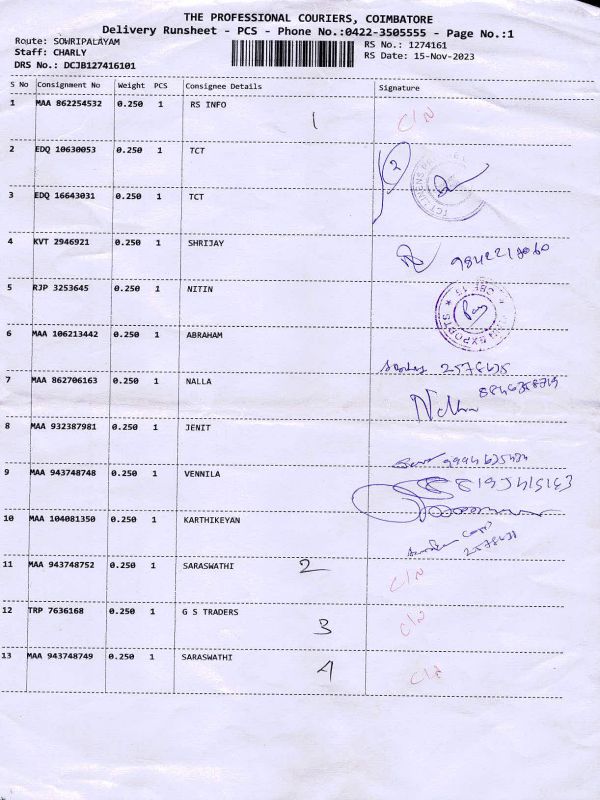 THE PROFESSIONAL COURIERS, COIMBATORE
Delivery Runsheet - PCS - Phone No.:0422-3505555 - Page No.:1
Route: SOWRIPALAYAM
RS No.: 1274161
Staff: CHARLY
RS Date: 15-Nov-2023
DRS No.: DCJB127416101
S No Consignment No Weight PCS Consignee Details Signature
1 MAA 862254532 0.250 1 RS INFO 1 C/N
2 EDQ 10630053 0.250 1 TCT 2
3 EDQ 16643031 0.250 1 TCT
4 KVT 2946921 0.250 1 SHRIJAY
5 RJP 3253645 0.250 1 NITIN
6 MAA 106213442 0.250 1 ABRAHAM 2578635
7 MAA 862706163 0.250 1 NALLA
8 MAA 932387981 0.250 1 JENIT
9 MAA 943748748 0.250 1 VENNILA
10 MAA 104081350 0.250 1 KARTHIKEYAN
11 MAA 943748752 0.250 1 SARASWATHI 2 C/N
12 TRP 7636168 0.250 1 G S TRADERS 3 C/N
13 MAA 943748749 0.250 1 SARASWATHI 4